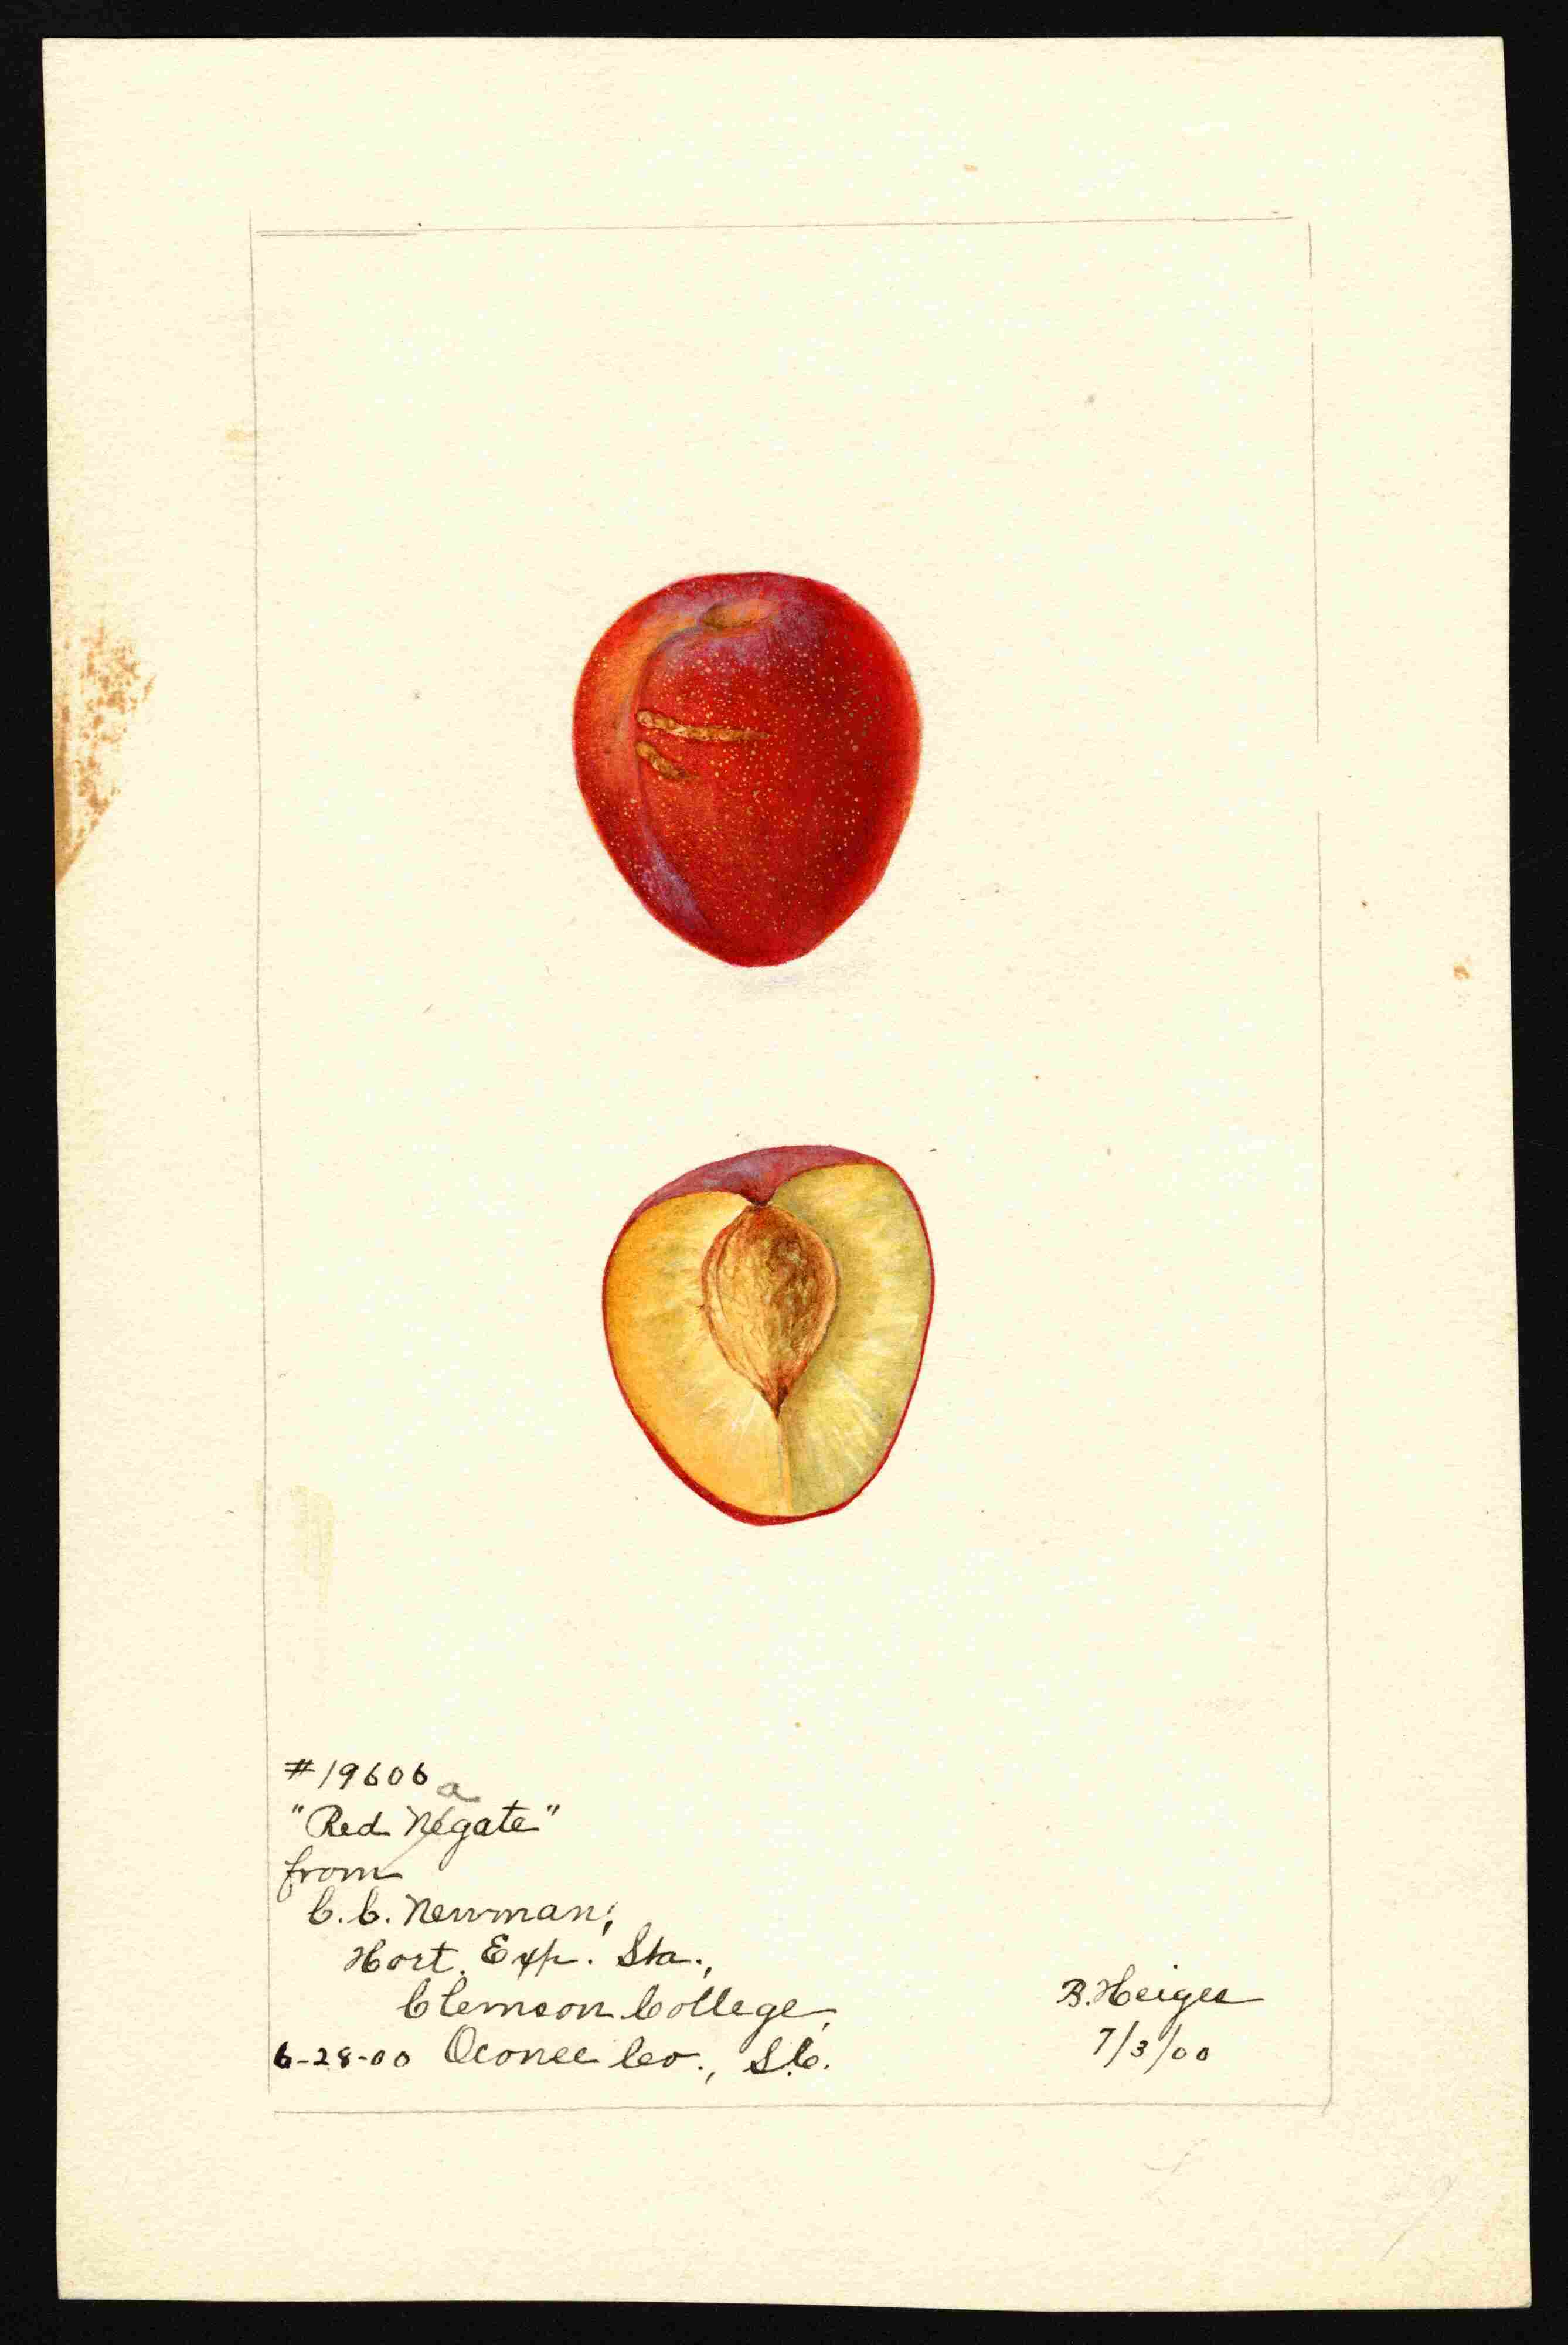 #19606a
"Red Négate"
from
C. C. Newman,
Hort. Exp. Sta.,
Clemson College,
6-28-00 Oconee Co., S.C.
B. Heiges
7/3/00